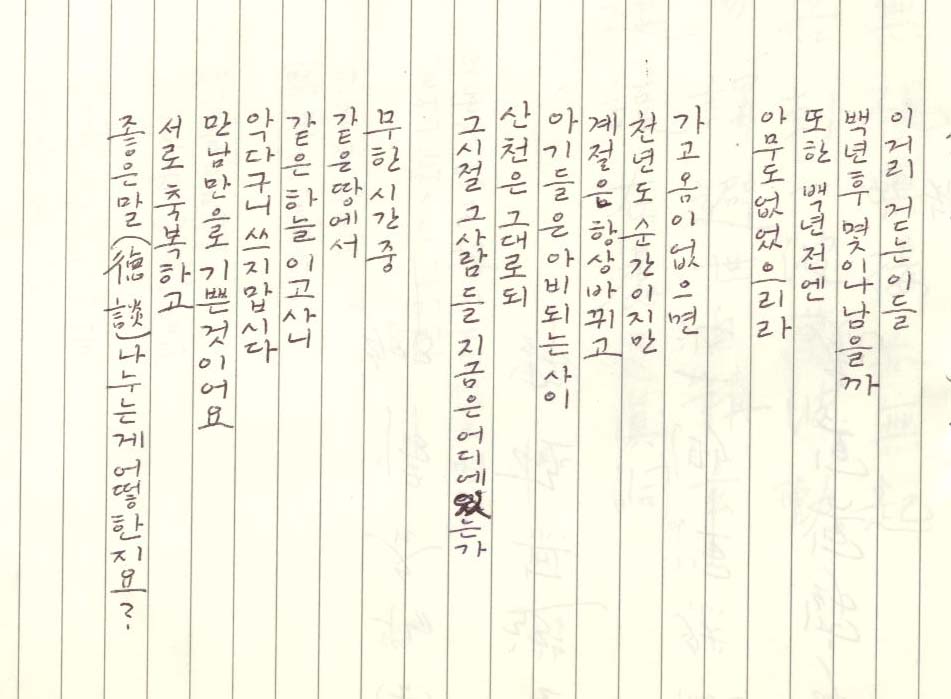 이거리 걷는이들
백년후 몇이나 남을까
또한 백년전엔
아무도 없었으리라
가고 옴이 없으면
천년도 순간이지만
계절은 항상 바뀌고
아기들은 아비되는 사이
산천은 그대로되
그시절 그사람들 지금은 어디에 있는가
무한 시간중
같은 땅에서
같은 하늘 이고사니
악다구니 쓰지맙시다
만남만으로 기쁜것이어요
서로 축복하고
좋은말(德談)나누는게 어떠한지요?